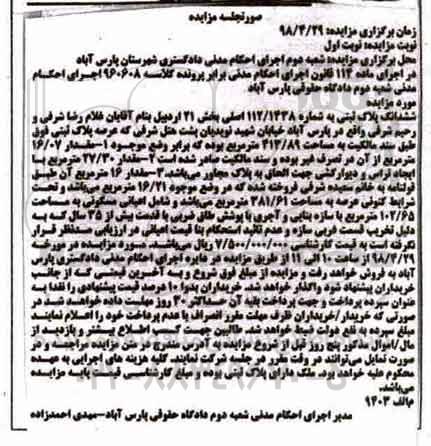 صورتجلسه مزایده
زمان برگزاری مزایده: ۹۸/۴/۲۹
نوبت مزایده: نوبت اول
محل برگزاری مزایده: شعبه دوم اجرای احکام مدنی دادگستری شهرستان پارس آباد
در اجرای ماده ۱۱۴ قانون اجرای احکام مدنی برابر پرونده کلاسه ۹۶۰۶۰۸ اجرای احکام
مدنی شعبه دوم دادگاه حقوقی پارس آباد
مورد مزایده
ششدانگ پلاک ثبتی به شماره ۱۱۲/۱۴۳۸ اصلی بخش ۲۱ اردبیل بنام آقایان غلام رضا شرفی و
رحیم شرفی واقع در پارس آباد خیابان شهید نویدیان پشت هتل شرفی که عرصه پلاک ثبتی فوق
طبق سند مالکیت به مساحت ۴۱۳/۸۹ مترمربع بوده که برابر وضع موجود ۱-مقدار ۱۶/۰۷
مترمربع از آن در تصرف غیر بوده و سند مالکیت صادر شده است ۲-مقدار ۲۷/۳۰ مترمربع با
ایجاد تراس و دیوارکشی جهت الحاق به پلاک مجاور می‌باشد ۳-مقدار ۱۶ مترمربع آن طبق
قولنامه به خانم سعیده شرفی فروخته شده که در وضع موجود ۱۶/۲۱ مترمربع می‌باشد و تحت
شرایط کنونی عرصه به مساحت ۳۸۱/۶۱ مترمربع می‌باشد و شامل اعیانی مسکونی به مساحت
۱۰۲/۶۵ مترمربع با سازه بنایی و آجری با پوشش طاق ضربی با قدمت بیش از ۳۵ سال که به
دلیل تخریب قسمت غربی سازه و عدم تائید استحکام بنا قیمت اعیانی در ارزیابی مدنظر قرار
نگرفته است به قیمت کارشناسی ۷/۵۰۰/۰۰۰/۰۰۰ ریال می‌باشد. مورد مزایده در مورخه
۹۸/۴/۲۹ از ساعت ۱۰ الی ۱۱ از طریق مزایده در دایره اجرای احکام مدنی دادگستری پارس
آباد به فروش خواهد رفت و مزایده از مبلغ فوق شروع و به آخرین قیمتی که از جانب
خریداران پیشنهاد شود واگذار خواهد شد. خریداران بدوا ۱۰ درصد قیمت پیشنهادی را نقدا به
عنوان سپرده پرداخت و جهت پرداخت بقیه آن حداکثر ۳۰ روز مهلت داده خواهد شد در
صورتی که خریدار/خریداران ظرف مهلت مقرر انصراف یا عدم پرداخت خود را اعلام نمایند
مبلغ سپرده به نفع دولت ضبط خواهد شد. طالبین جهت کسب اطلاع بیشتر و بازدید از
مال/اموال مذکور پنج روز قبل از شروع مزایده به آدرس مطروحه مورد مزایده مراجعه و در
صورت تمایل می‌توانند در وقت مقرر در جلسه شرکت نمایند. کلیه هزینه های اجرایی به عهده
محکوم علیه خواهد بود. ملک دارای پلاک ثبتی بوده و مبلغ کارشناسی قیمت پایه مزایده
می‌باشد.
م‌الف ۱۴۰۳
مدیر اجرای احکام مدنی شعبه دوم دادگاه حقوقی پارس آباد-مهدی احمدزاده